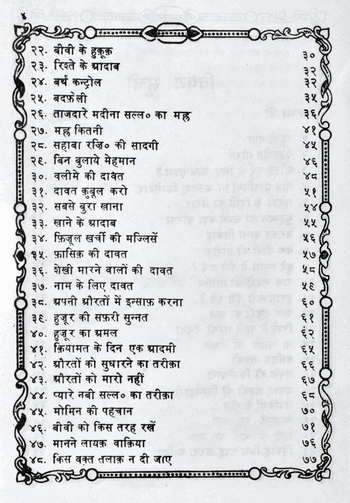 ४
२२. बीवी के हुक़ूक़ ३०
२३. रिश्ते के आदाब ३२
२४. बर्थ कन्ट्रोल ३२
२५. बदफ़ेली ३५
२६. ताजदारे मदीना सल्ल० का मह्र ३६
२७. मह्र कितनी ४१
२८. सहाबा रज़ि० की सादगी ४५
२९. बिन बुलाये मेहमान ४६
३०. वलीमे की दावत ४८
३१. दावत क़ुबूल करो ५१
३२. सबसे बुरा खाना ५४
३३. खाने के आदाब ५५
३४. फ़िज़ूल खर्ची की मज्लिसें ५६
३५. फ़ासिक़ की दावत ५७
३६. शेख़ी मारने वालों की दावत ५८
३७. नाम के लिए दावत ५९
३८. अपनी औरतों में इन्साफ़ करना ६०
३९. हुज़ूर की सफ़री सुन्नत ६१
४०. हुज़ूर का अमल ६२
४१. क़ियामत के दिन एक आदमी ६५
४२. औरतों को सुधारने का तरीक़ा ६६
४३. औरतों को मारो नहीं ६७
४४. प्यारे नबी सल्ल० का तरीक़ा ६८
४५. मोमिन की पहचान ७०
४६. बीवी को किस तरह रखें ७१
४७. मानने लायक़ वाक़िया ७६
४८. किस वक़्त तलाक़ न दी जाए ७७